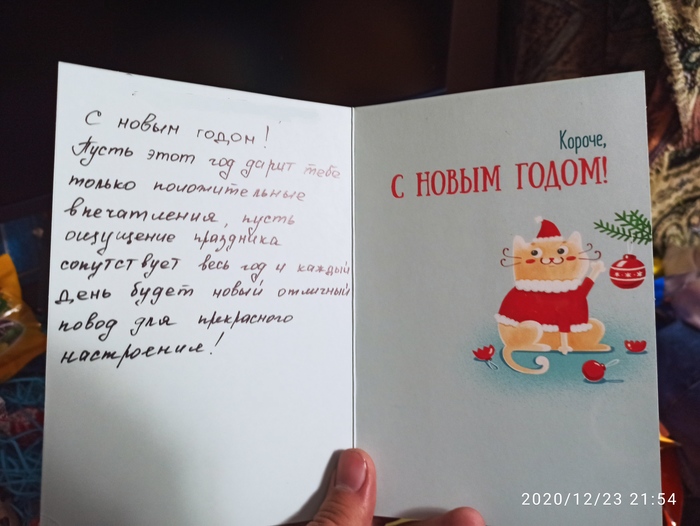 С новым годом!
Пусть этот год дарит тебе
только положительные
впечатления, пусть
ощущение праздника
сопутствует весь год и каждый
день будет новый отличный
повод для прекрасного
настроения!
Короче,
С НОВЫМ ГОДОМ!
2020/12/23 21:54